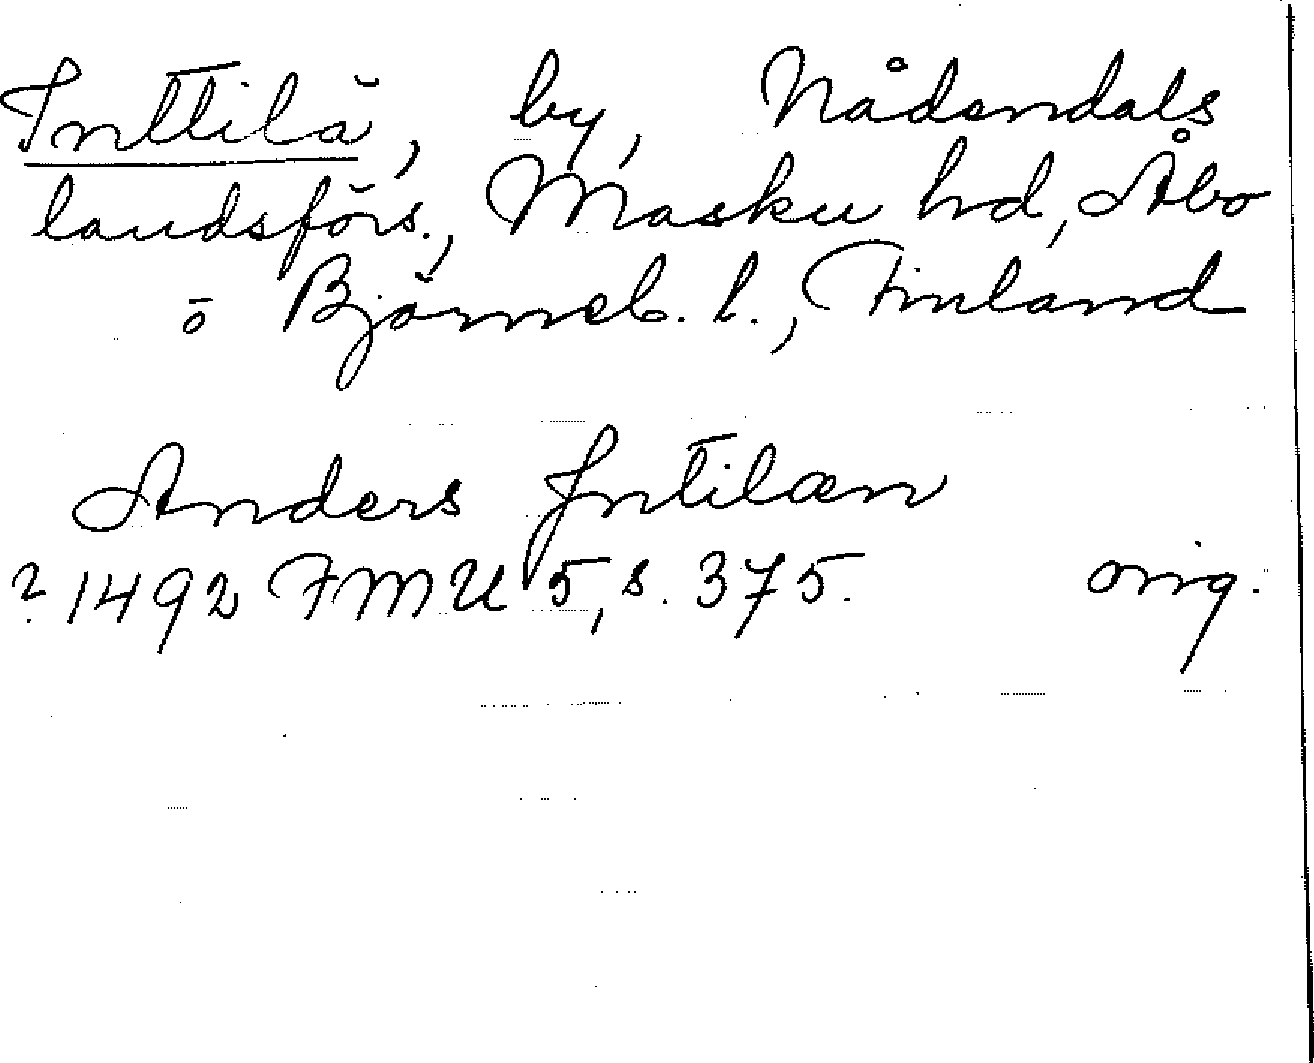 Inttilä, by, Nådendals
landsförs., Masku hd, Åbo
o Björneb. l., Finland
Anders Jntilaen
? 1492 FMU 5, s. 375. orig.